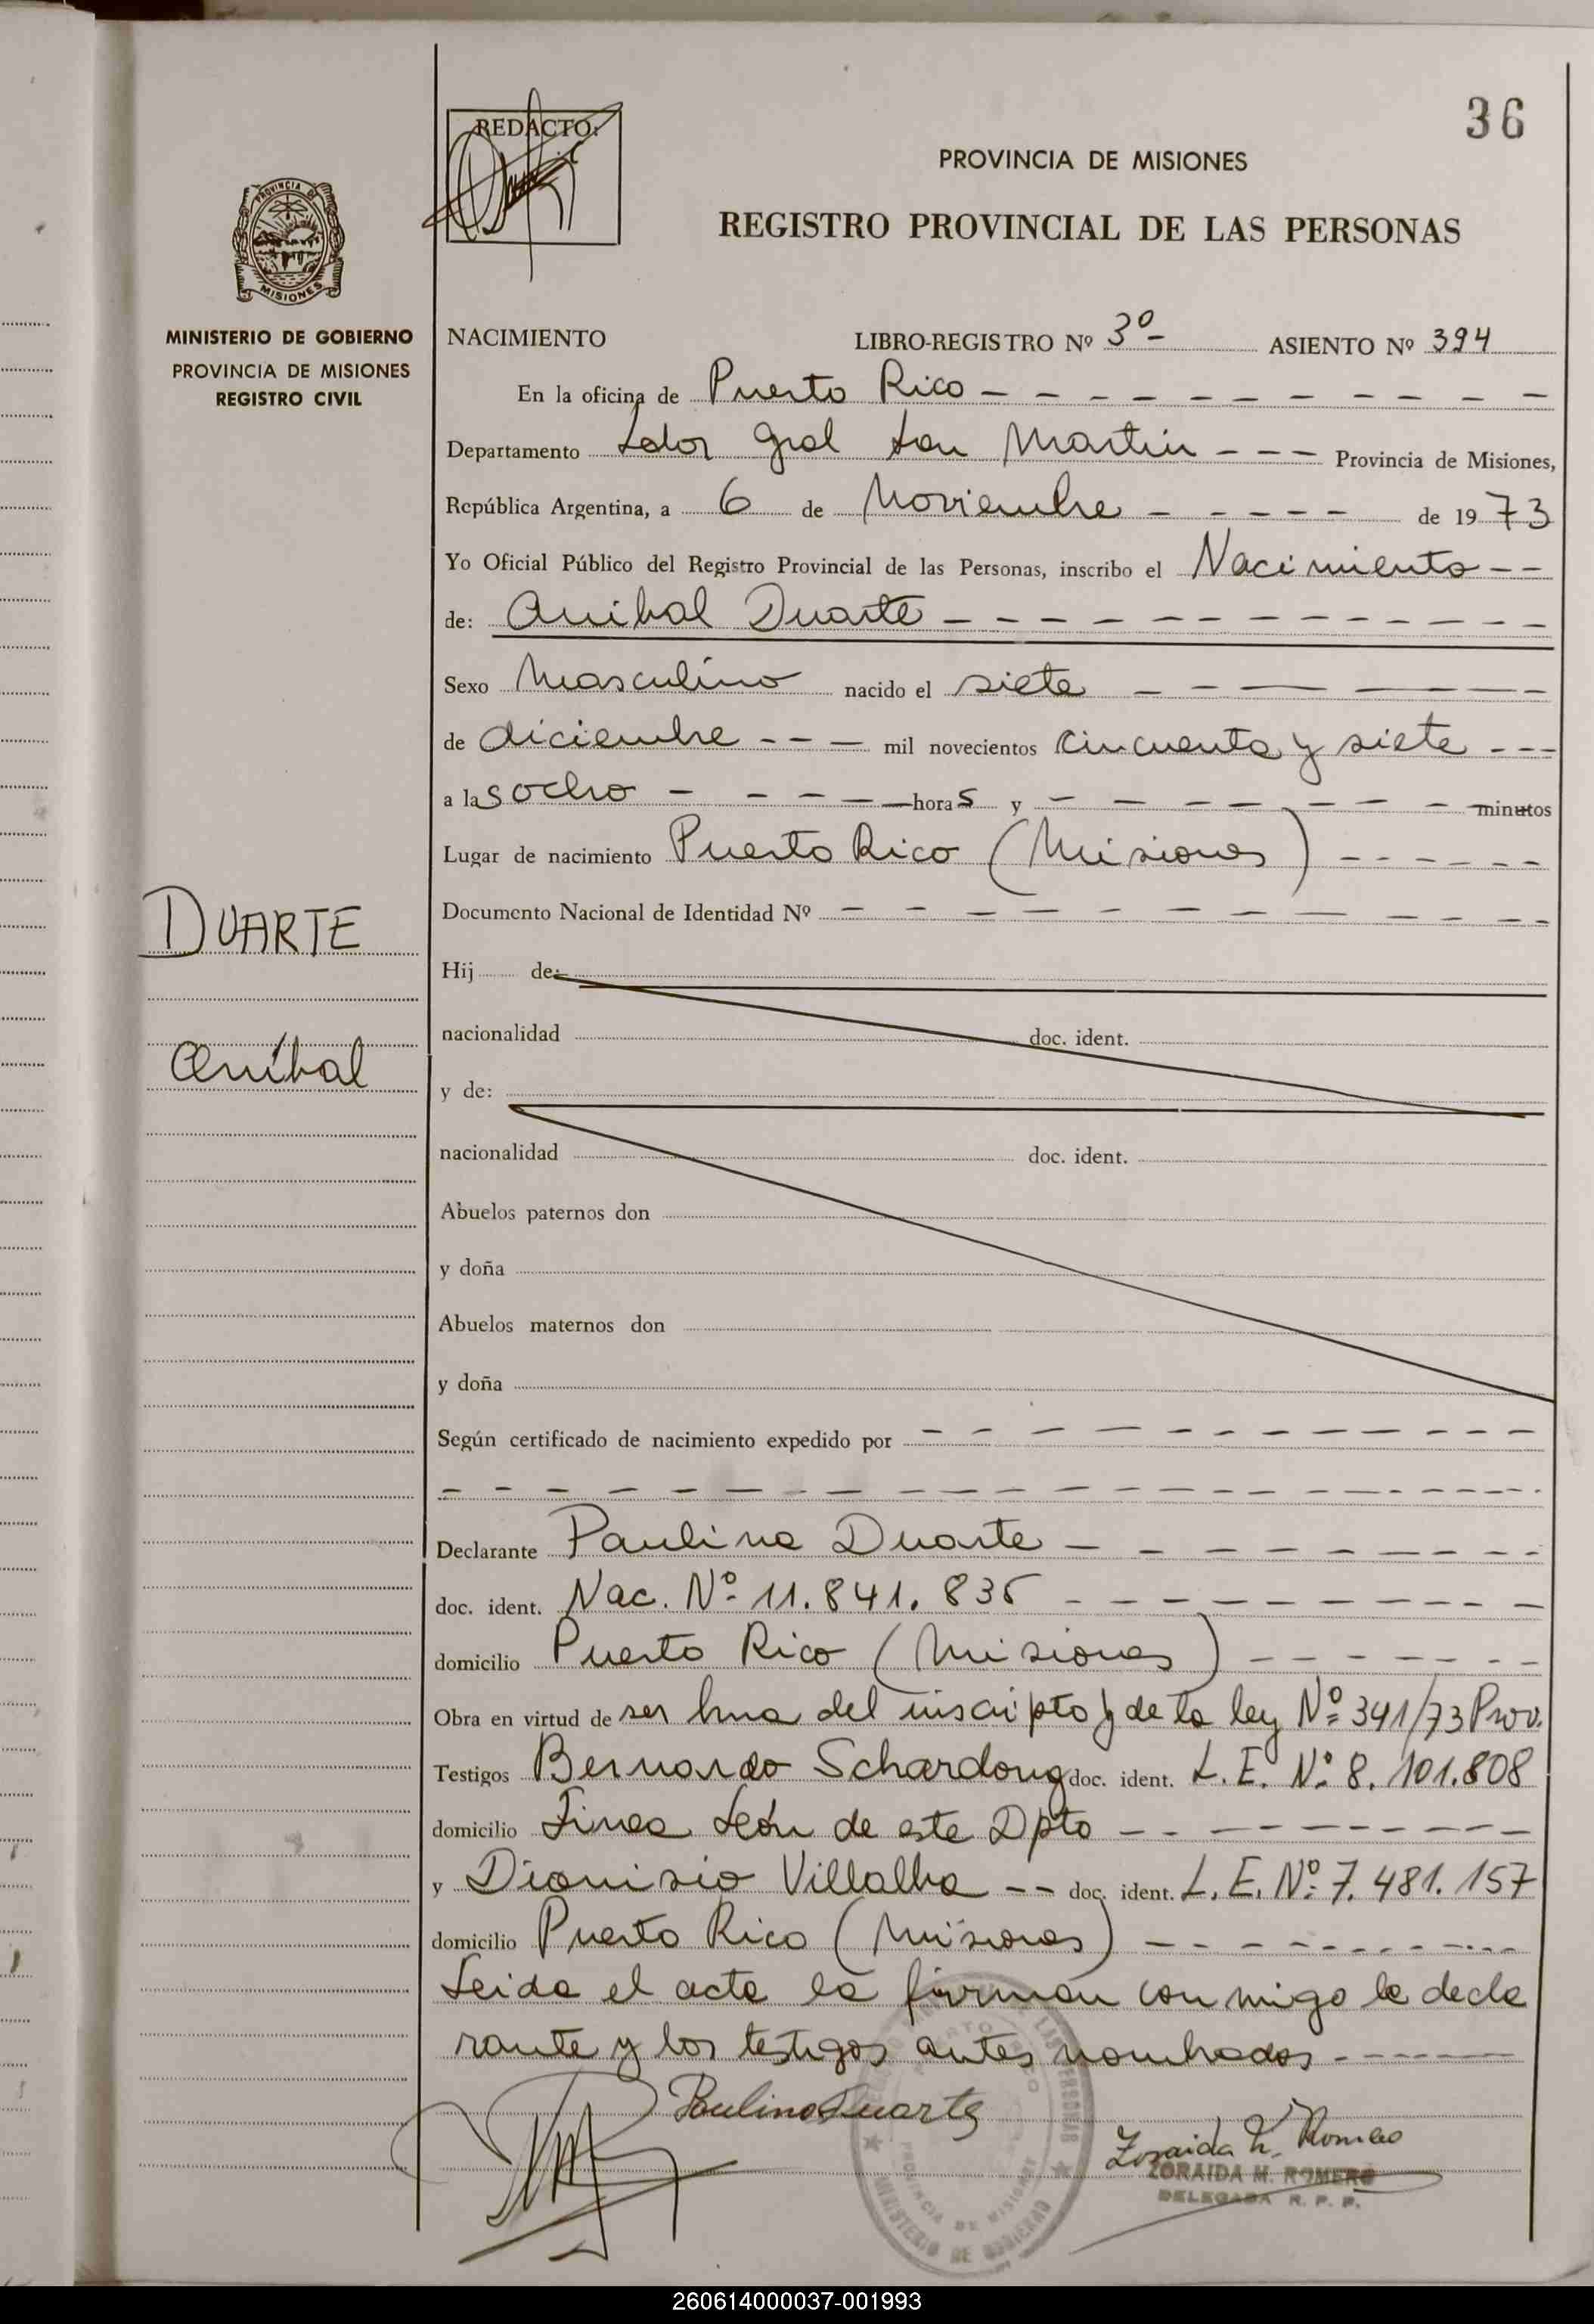 36
REDACTO:
PROVINCIA DE MISIONES
REGISTRO PROVINCIAL DE LAS PERSONAS
PROVINCIA DE
MISIONES
MINISTERIO DE GOBIERNO
PROVINCIA DE MISIONES
REGISTRO CIVIL
NACIMIENTO LIBRO-REGISTRO Nº 3º- ASIENTO Nº 394
En la oficina de Puerto Rico - - - - - - - - - - -
Departamento Ldor Gral San Martin - - - Provincia de Misiones,
República Argentina, a 6 de Noviembre - - - - - de 1973
Yo Oficial Público del Registro Provincial de las Personas, inscribo el Nacimiento - -
de: Anibal Duarte - - - - - - - - - - - - - -
Sexo Masculino nacido el siete - - - - -
de diciembre - - - mil novecientos cincuenta y siete - - -
a las ocho - - - - - horas y - - - - - - - - minutos
Lugar de nacimiento Puerto Rico (Misiones) - - - - - -
Documento Nacional de Identidad Nº - - - - - - - - - - - -
DUARTE
Aníbal
Hij de:
nacionalidad doc. ident.
y de:
nacionalidad doc. ident.
Abuelos paternos don
y doña
Abuelos maternos don
y doña
Según certificado de nacimiento expedido por - - - - - - - - - - - -
- - - - - - - - - - - - - - - - - - - - - -
Declarante Paulina Duarte - - - - - - - - - -
doc. ident. Nac. Nº 11.841.835 - - - - - - - - - -
domicilio Puerto Rico (Misiones) - - - - - - - -
Obra en virtud de ser hna del inscripto y de la ley Nº 341/73 Prov.
Testigos Bernardo Schardong doc. ident. L.E. Nº 8.101.808
domicilio Linea León de este Dpto - - - - - - - - - -
y Dionisio Villalba - - doc. ident. L.E. Nº 7.481.157
domicilio Puerto Rico (Misiones) - - - - - - - - - - -
Leida el acta la firman conmigo la decla
rante y los testigos antes nombrados - - - - - -
Paulina Duarte
Zoraida H. Romero
ZORAIDA H. ROMERO
DELEGADA R. P. P.
PROVINCIA DE MISIONES
MINISTERIO DE GOBIERNO
260614000037-001993